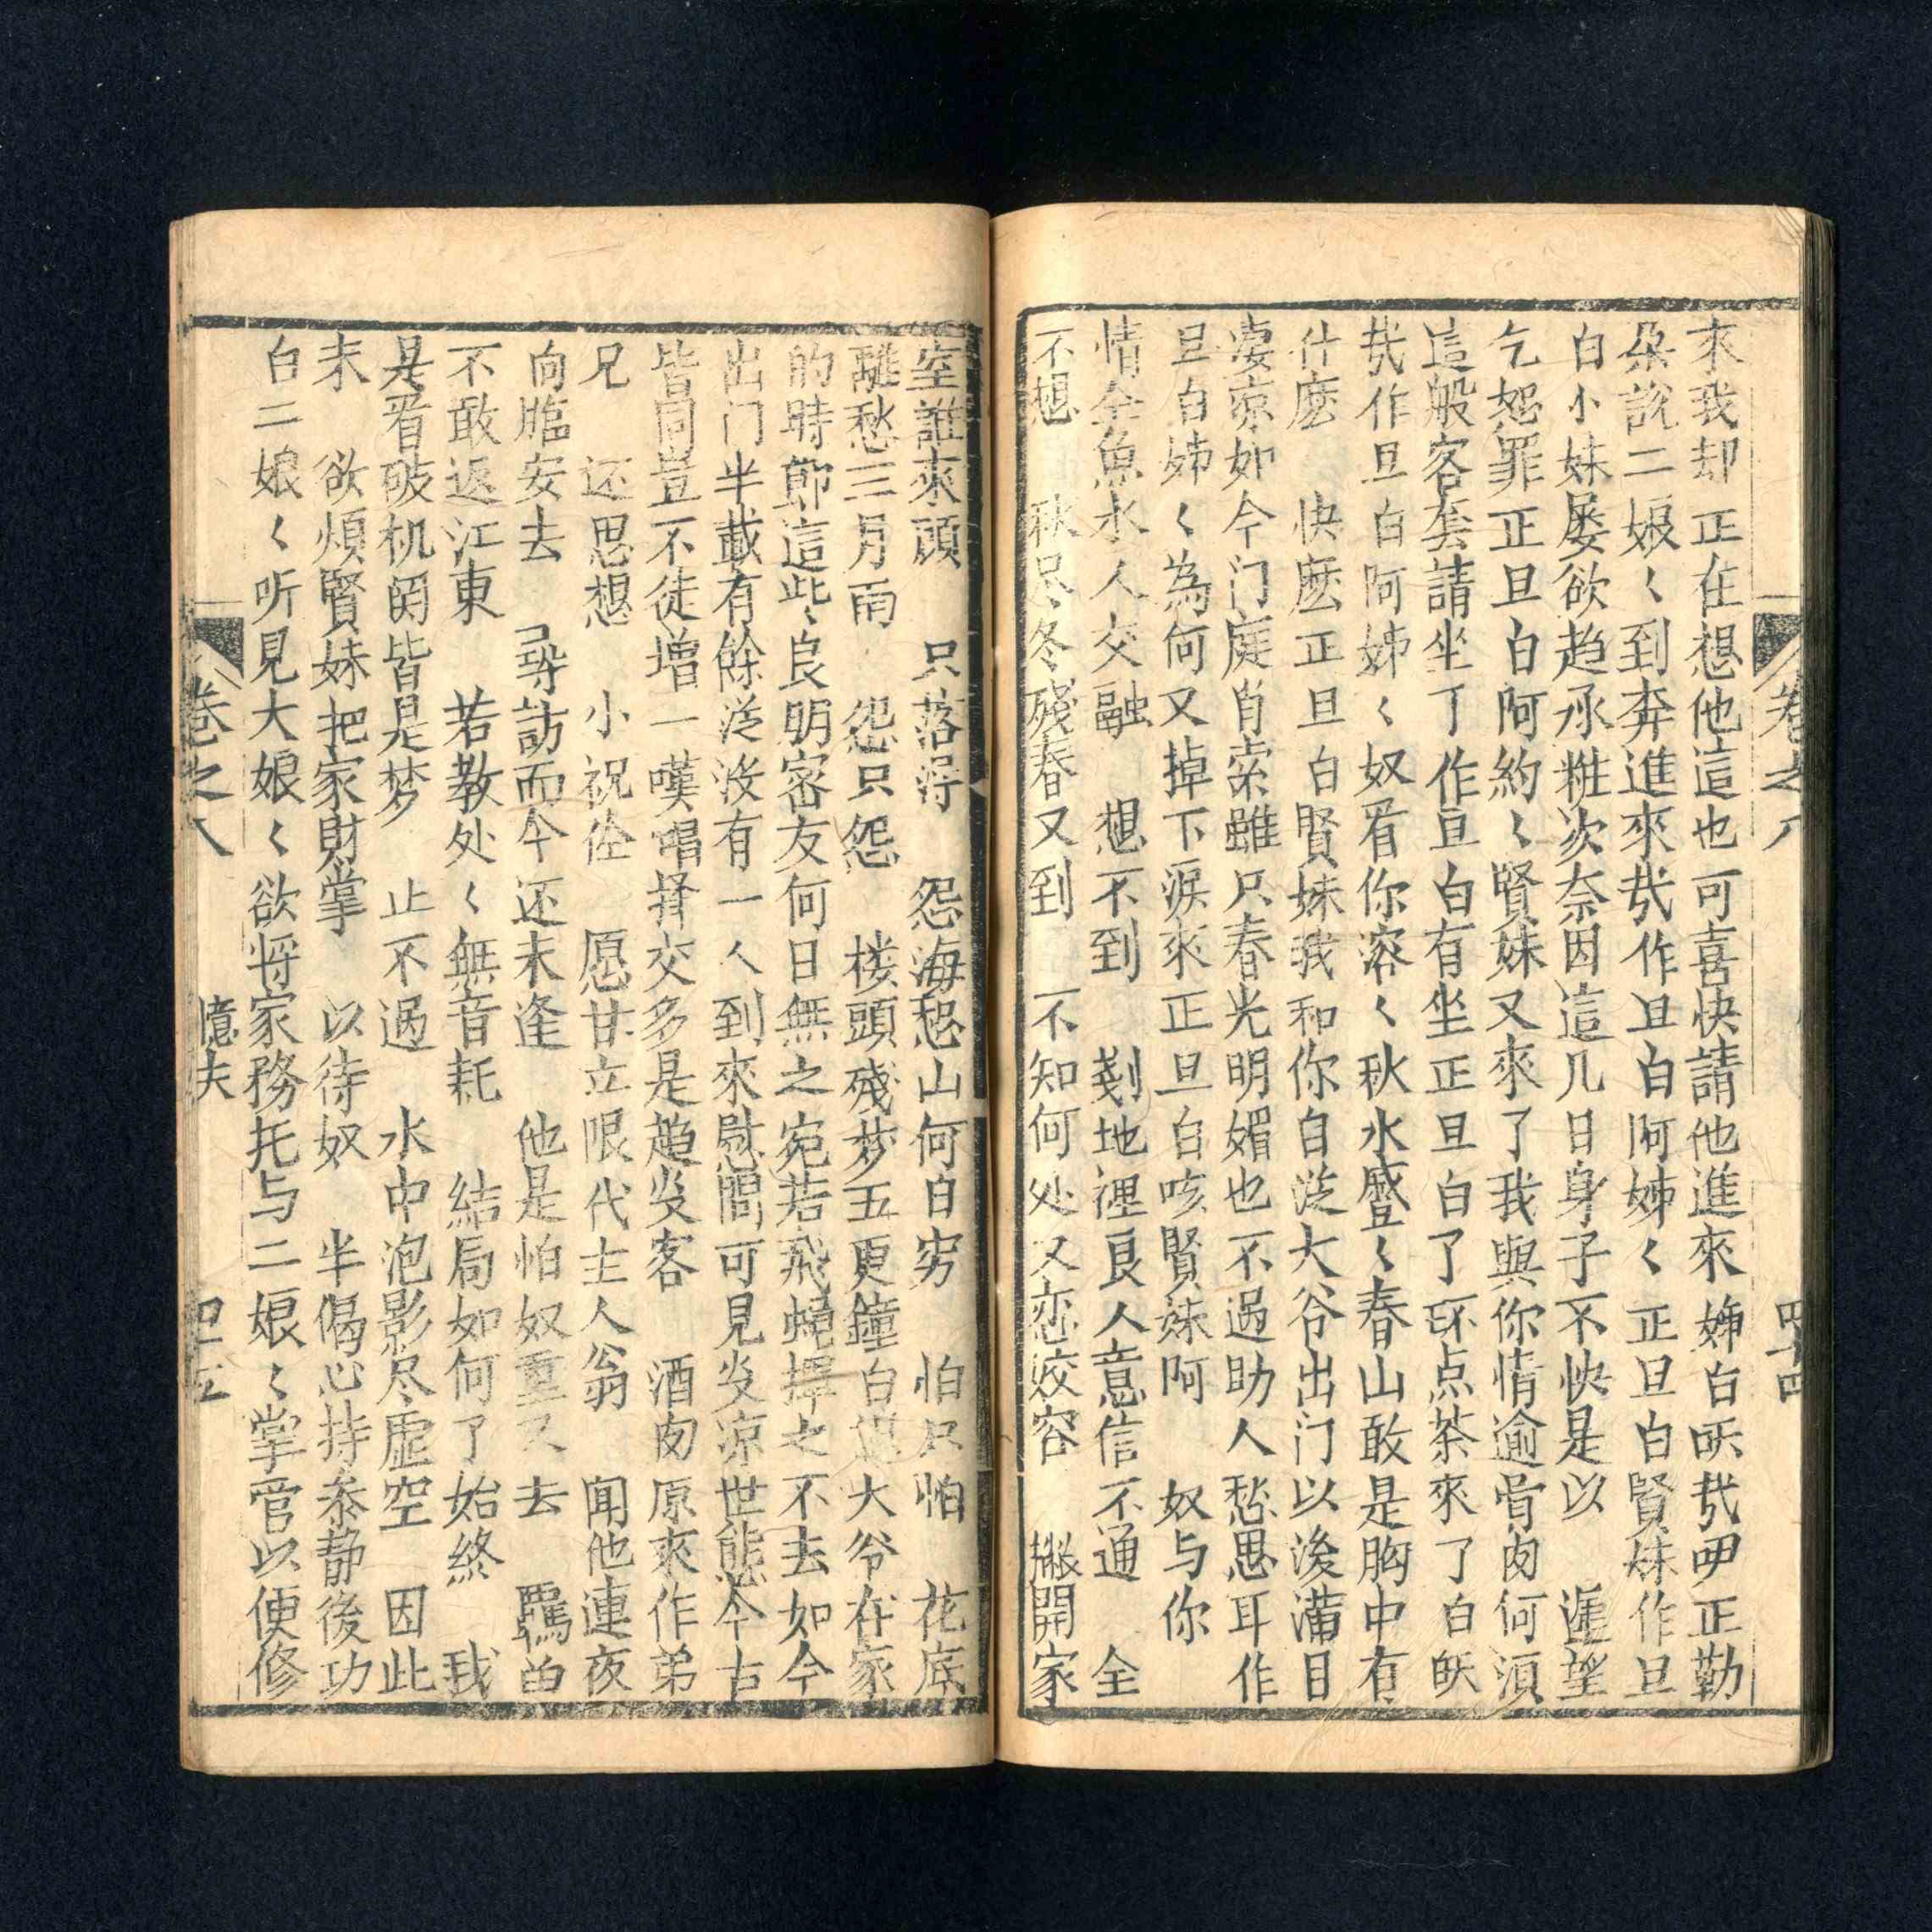 來我却 正在想他這也可喜快請他進來 姊白㕶我吚正勤
朵說二娘〱到奔進來我作旦白阿姊〱正旦白賢妹作旦
白小妹屡欲趋承粧次奈因這几日身子不快是以 遲望
乞恕罪正旦白阿約〱賢妹又來了我與你情逾骨肉何須
這般客套請坐了作旦白有坐正旦白了环点茶來了白㕶
我作旦白阿姊〱奴看你溶〱秋水蹙〱春山敢是胸中有
什麽 快麽正旦白賢妹我和你自從大爷出门以後滿目
凄凉如今门庭肖索雖只春光明媚也不過助人愁思耳作
旦白姊〱為何又掉下淚來正旦白咳賢妹阿 奴与你
情全魚水人交融 想不到 剗地裡良人意信不通 全
不想 秋尽冬殘春又到 不知何处又恋姣容 撇開家
卷之八 四十四
室誰來頭 只落淂 怨海愁山何日穷 怕只怕 花底
離愁三月雨 怨只怨 楼頭殘梦五更鐘白想大爷在家
的時節這些〻良朋密友何日無之宛若飛蛾撢之不去如今
出门半載有餘從沒有一人到來慰問可見炎凉世態今古
皆同豈不徒增一嘆唱择交多是趋炎客 酒肉原來作弟
兄 还思想 小祝仝 愿甘立限代主人翁 闻他連夜
向臨安去 尋訪而今还未逢 他是怕奴重又去 羈的
不敢返江東 若教处〱無音耗 結局如何了始終 我
是看破机関皆是梦 止不過 水中泡影尽虛空 因此
未 欲煩賢妹把家財掌 以待奴 半偈心持叅静後功
白二娘〱听見大娘〱欲將家務托与二娘〻掌管以便修
卷之八 憶夫 四五